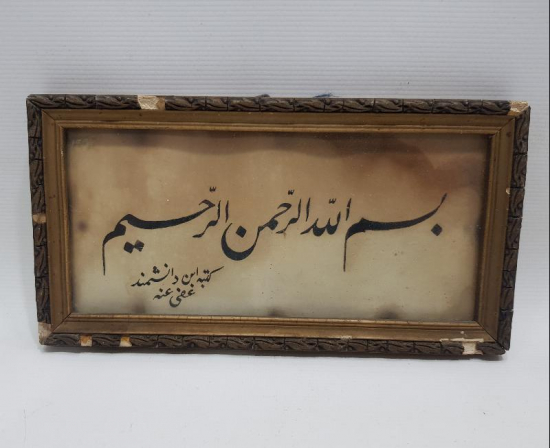 بسم الله الرّحمن الرّحیم
کتبه ابن دانشمند
عفی عنه